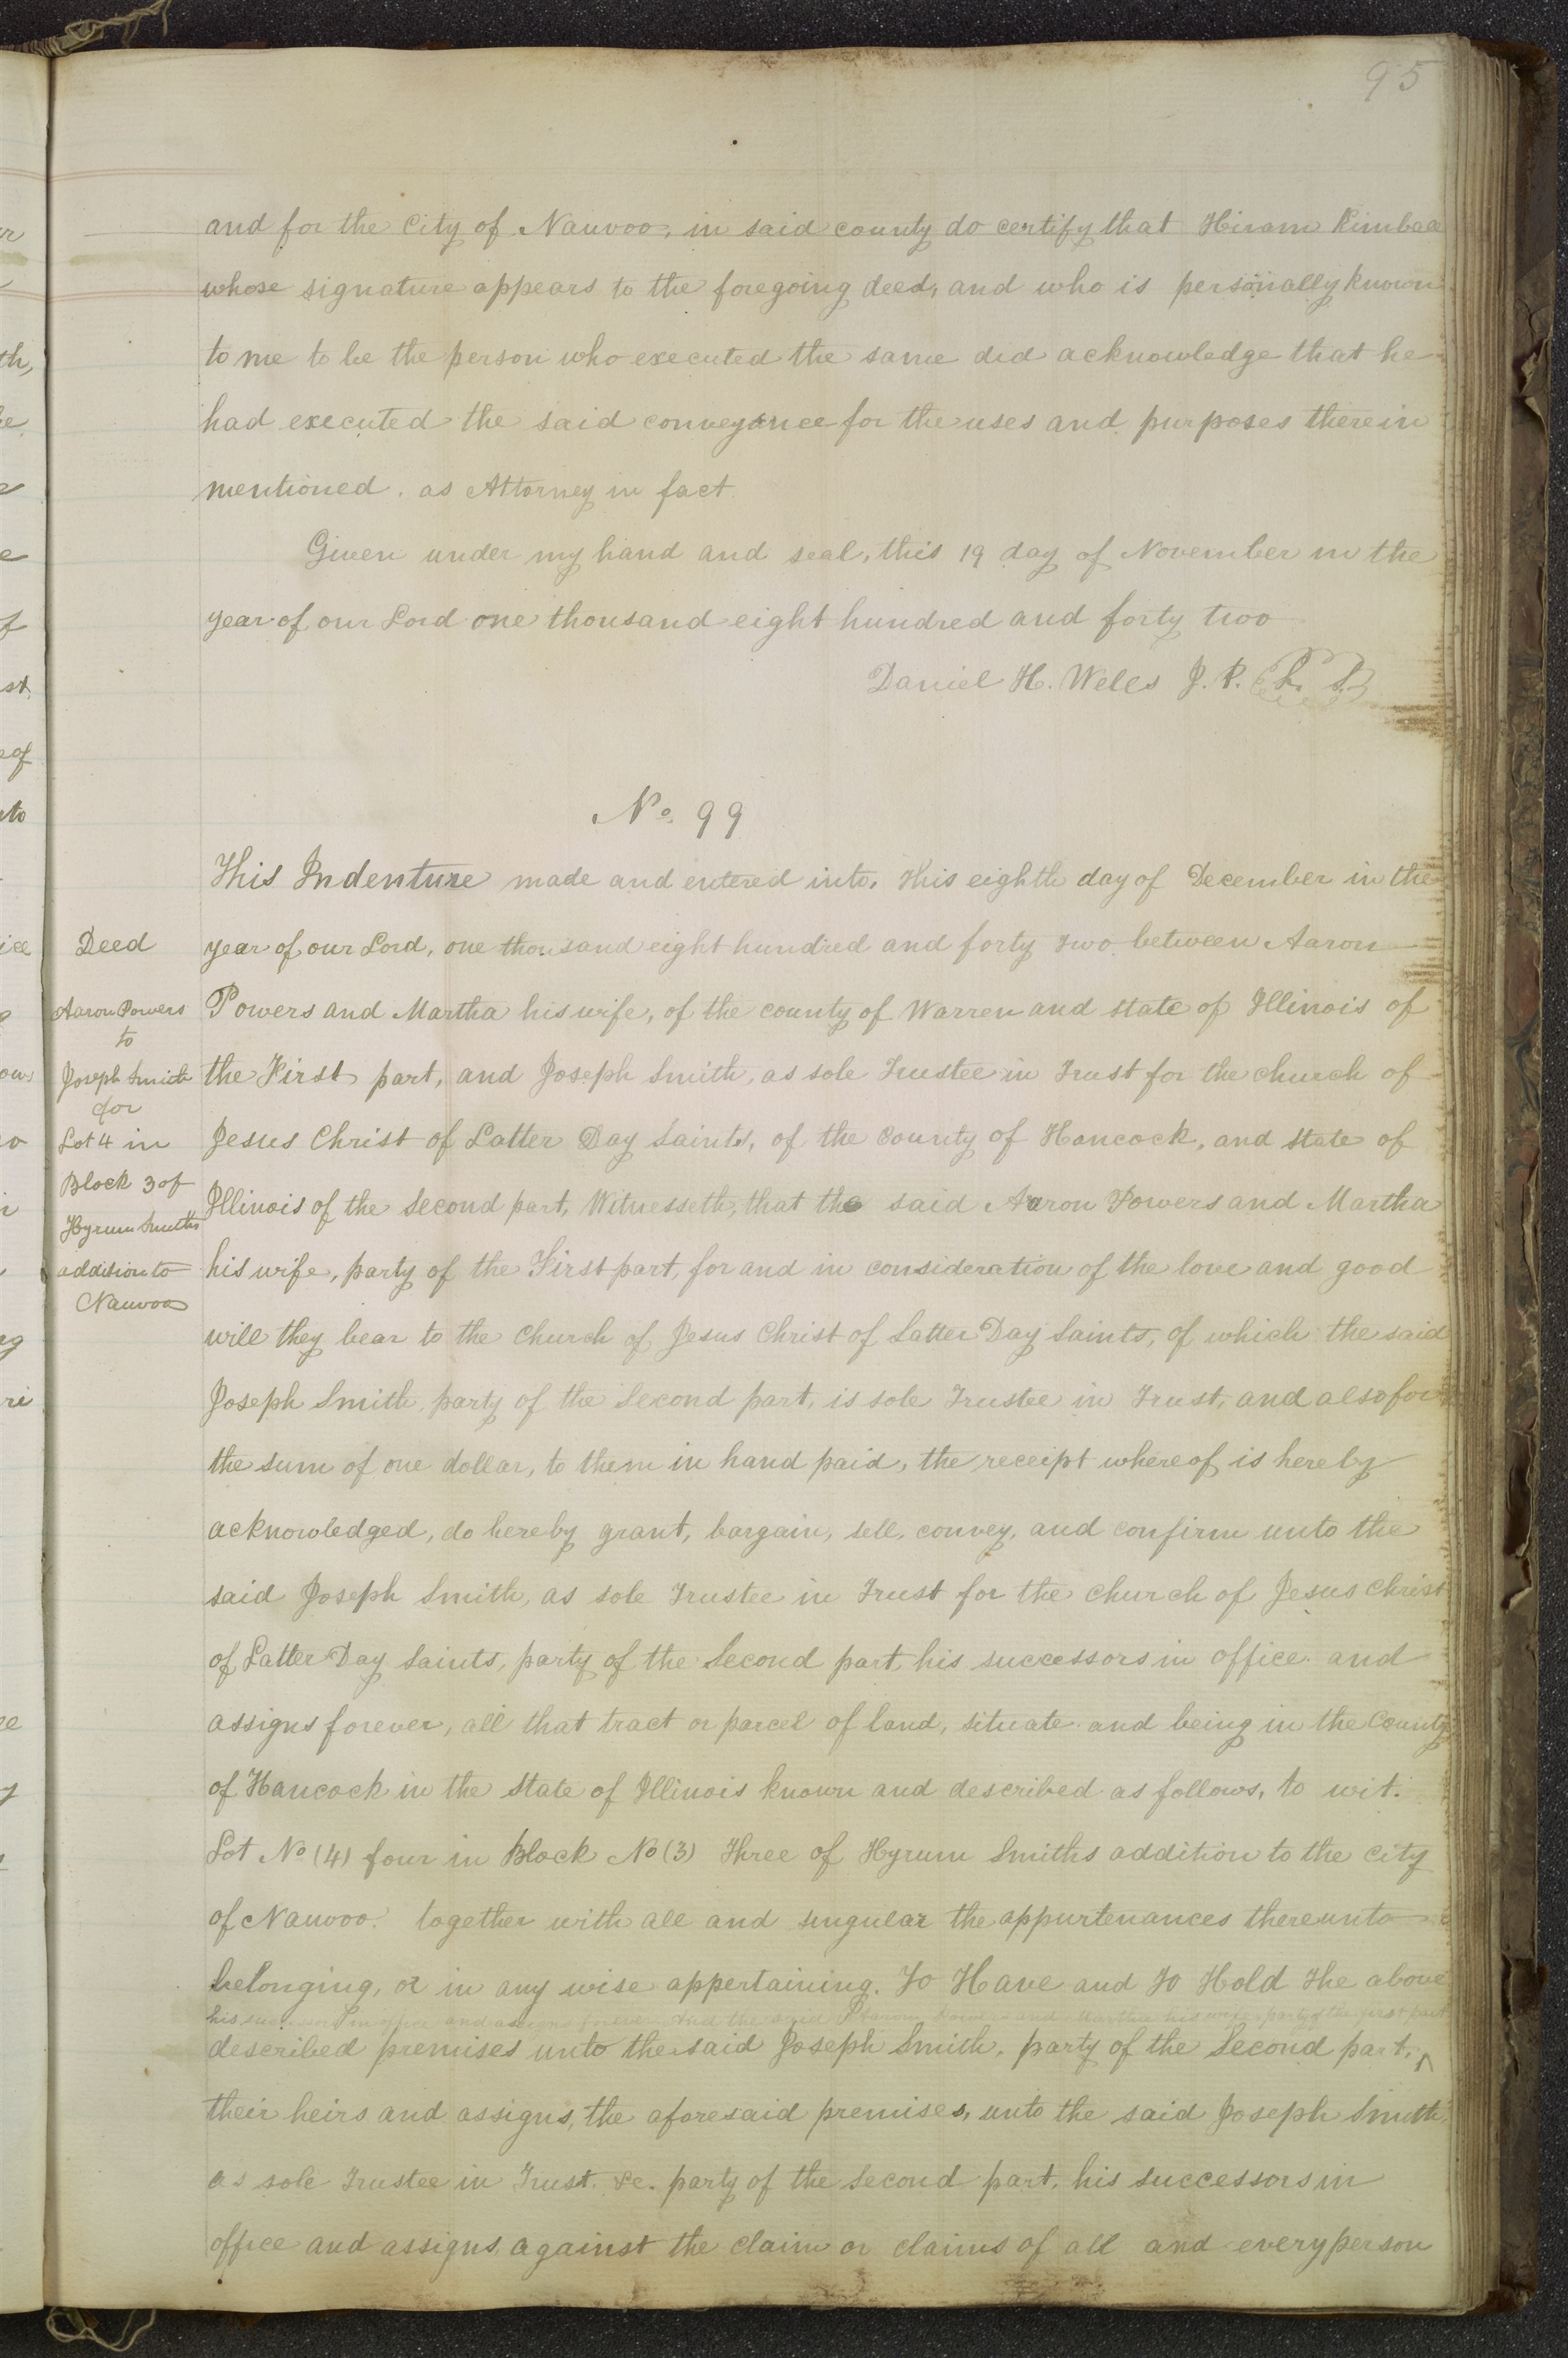 95
and for the City of Nauvoo, in said county do certify that Hiram Kimball
whose signature appears to the foregoing deed, and who is personally known
to me to be the person who executed the same did acknowledge that he
had executed the said conveyance for the uses and purposes therein
mentioned. as Attorney in fact
Given under my hand and seal, this 19 day of November in the
year of our Lord one thousand eight hundred and forty two
Daniel H. Wells J. P. L. S.
No. 99
This Indenture made and entered into, this eighth day of December in the
Deed
year of our Lord, one thousand eight hundred and forty two between Aaron
Aaron Powers
to
Joseph Smith
for
Lot 4 in
Block 3 of
Hyrum Smiths
addition to
Nauvoo
Powers and Martha his wife, of the county of Warren and state of Illinois of
the First part, and Joseph Smith, as sole Trustee in Trust for the church of
Jesus Christ of Latter Day Saints, of the County of Hancock, and state of
Illinois of the second part, Witnesseth, that the said Aaron Powers and Martha
his wife, party of the First part, for and in consideration of the love and good
will they bear to the Church of Jesus Christ of Latter Day Saints, of which the said
Joseph Smith, party of the Second part, is sole Trustee in Trust, and also for
the sum of one dollar, to them in hand paid, the receipt whereof is hereby
acknowledged, do hereby grant, bargain, sell, convey, and confirm unto the
said Joseph Smith, as sole Trustee in Trust for the church of Jesus Christ
of Latter Day Saints, party of the Second part, his successors in office and
assigns forever, all that tract or parcel of land, situate and being in the County
of Hancock in the state of Illinois known and described as follows, to wit.
Lot No (4) four in Block No (3) Three of Hyrum Smiths addition to the City
of Nauvoo. together with all and singular the appurtenances thereunto
belonging, or in any wise appertaining. To Have and To Hold the above
his successors in office and assigns forever And the said Aaron Powers and Martha his wife party of the first part
described premises unto the said Joseph Smith, party of the Second part, ^
their heirs and assigns, the aforesaid premises, unto the said Joseph Smith
as sole Trustee in Trust. &c. party of the Second part, his successors in
office and assigns, against the claim or claims of all and every person